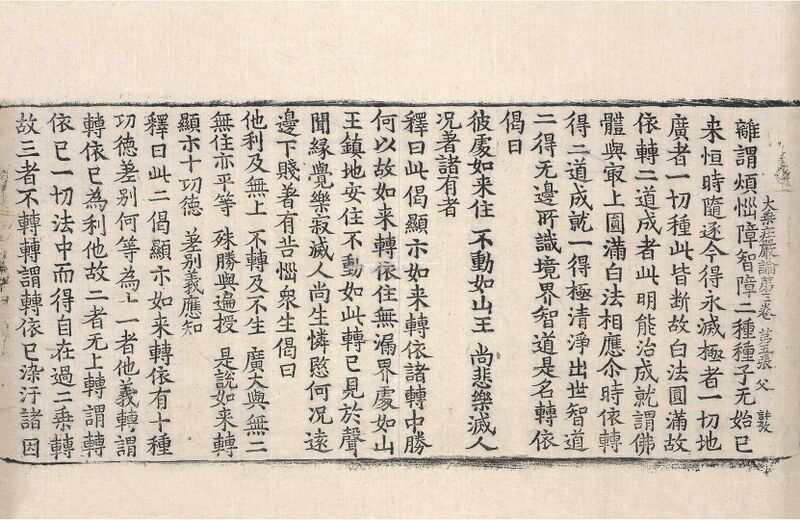 大乘莊嚴論第三卷 第五張 父
離謂煩惱障智障二種種子无始已
来恒時隨逐今得永滅極者一切地
廣者一切種此皆断故白法圓滿故
依轉二道成者此明能治成就謂佛
體與最上圓滿白法相應尒時依轉
得二道成就一得極清淨出世智道
二得无邊所識境界智道是名轉依
偈曰
彼處如来住 不動如山王 尚悲樂滅人
况者諸有者
釋曰此偈顯示如来轉依諸轉中勝
何以故如来轉依住無漏界處如山
王鎮地安住不動如此轉已見於聲
聞緣覺樂寂滅人尚生憐愍何况遠
邊下賤著有苦惱衆生偈曰
他利及無上 不轉及不生 廣大與無二
無住亦平等 殊勝與遍授 是說如来轉
顯示十功德 差別義應知
釋曰此二偈顯示如来轉依有十種
功德差別何等為上一者他義轉謂
轉依已為利他故二者无上轉謂轉
依已一切法中而得自在過二乘轉
故三者不轉轉謂轉依已染汙諸因